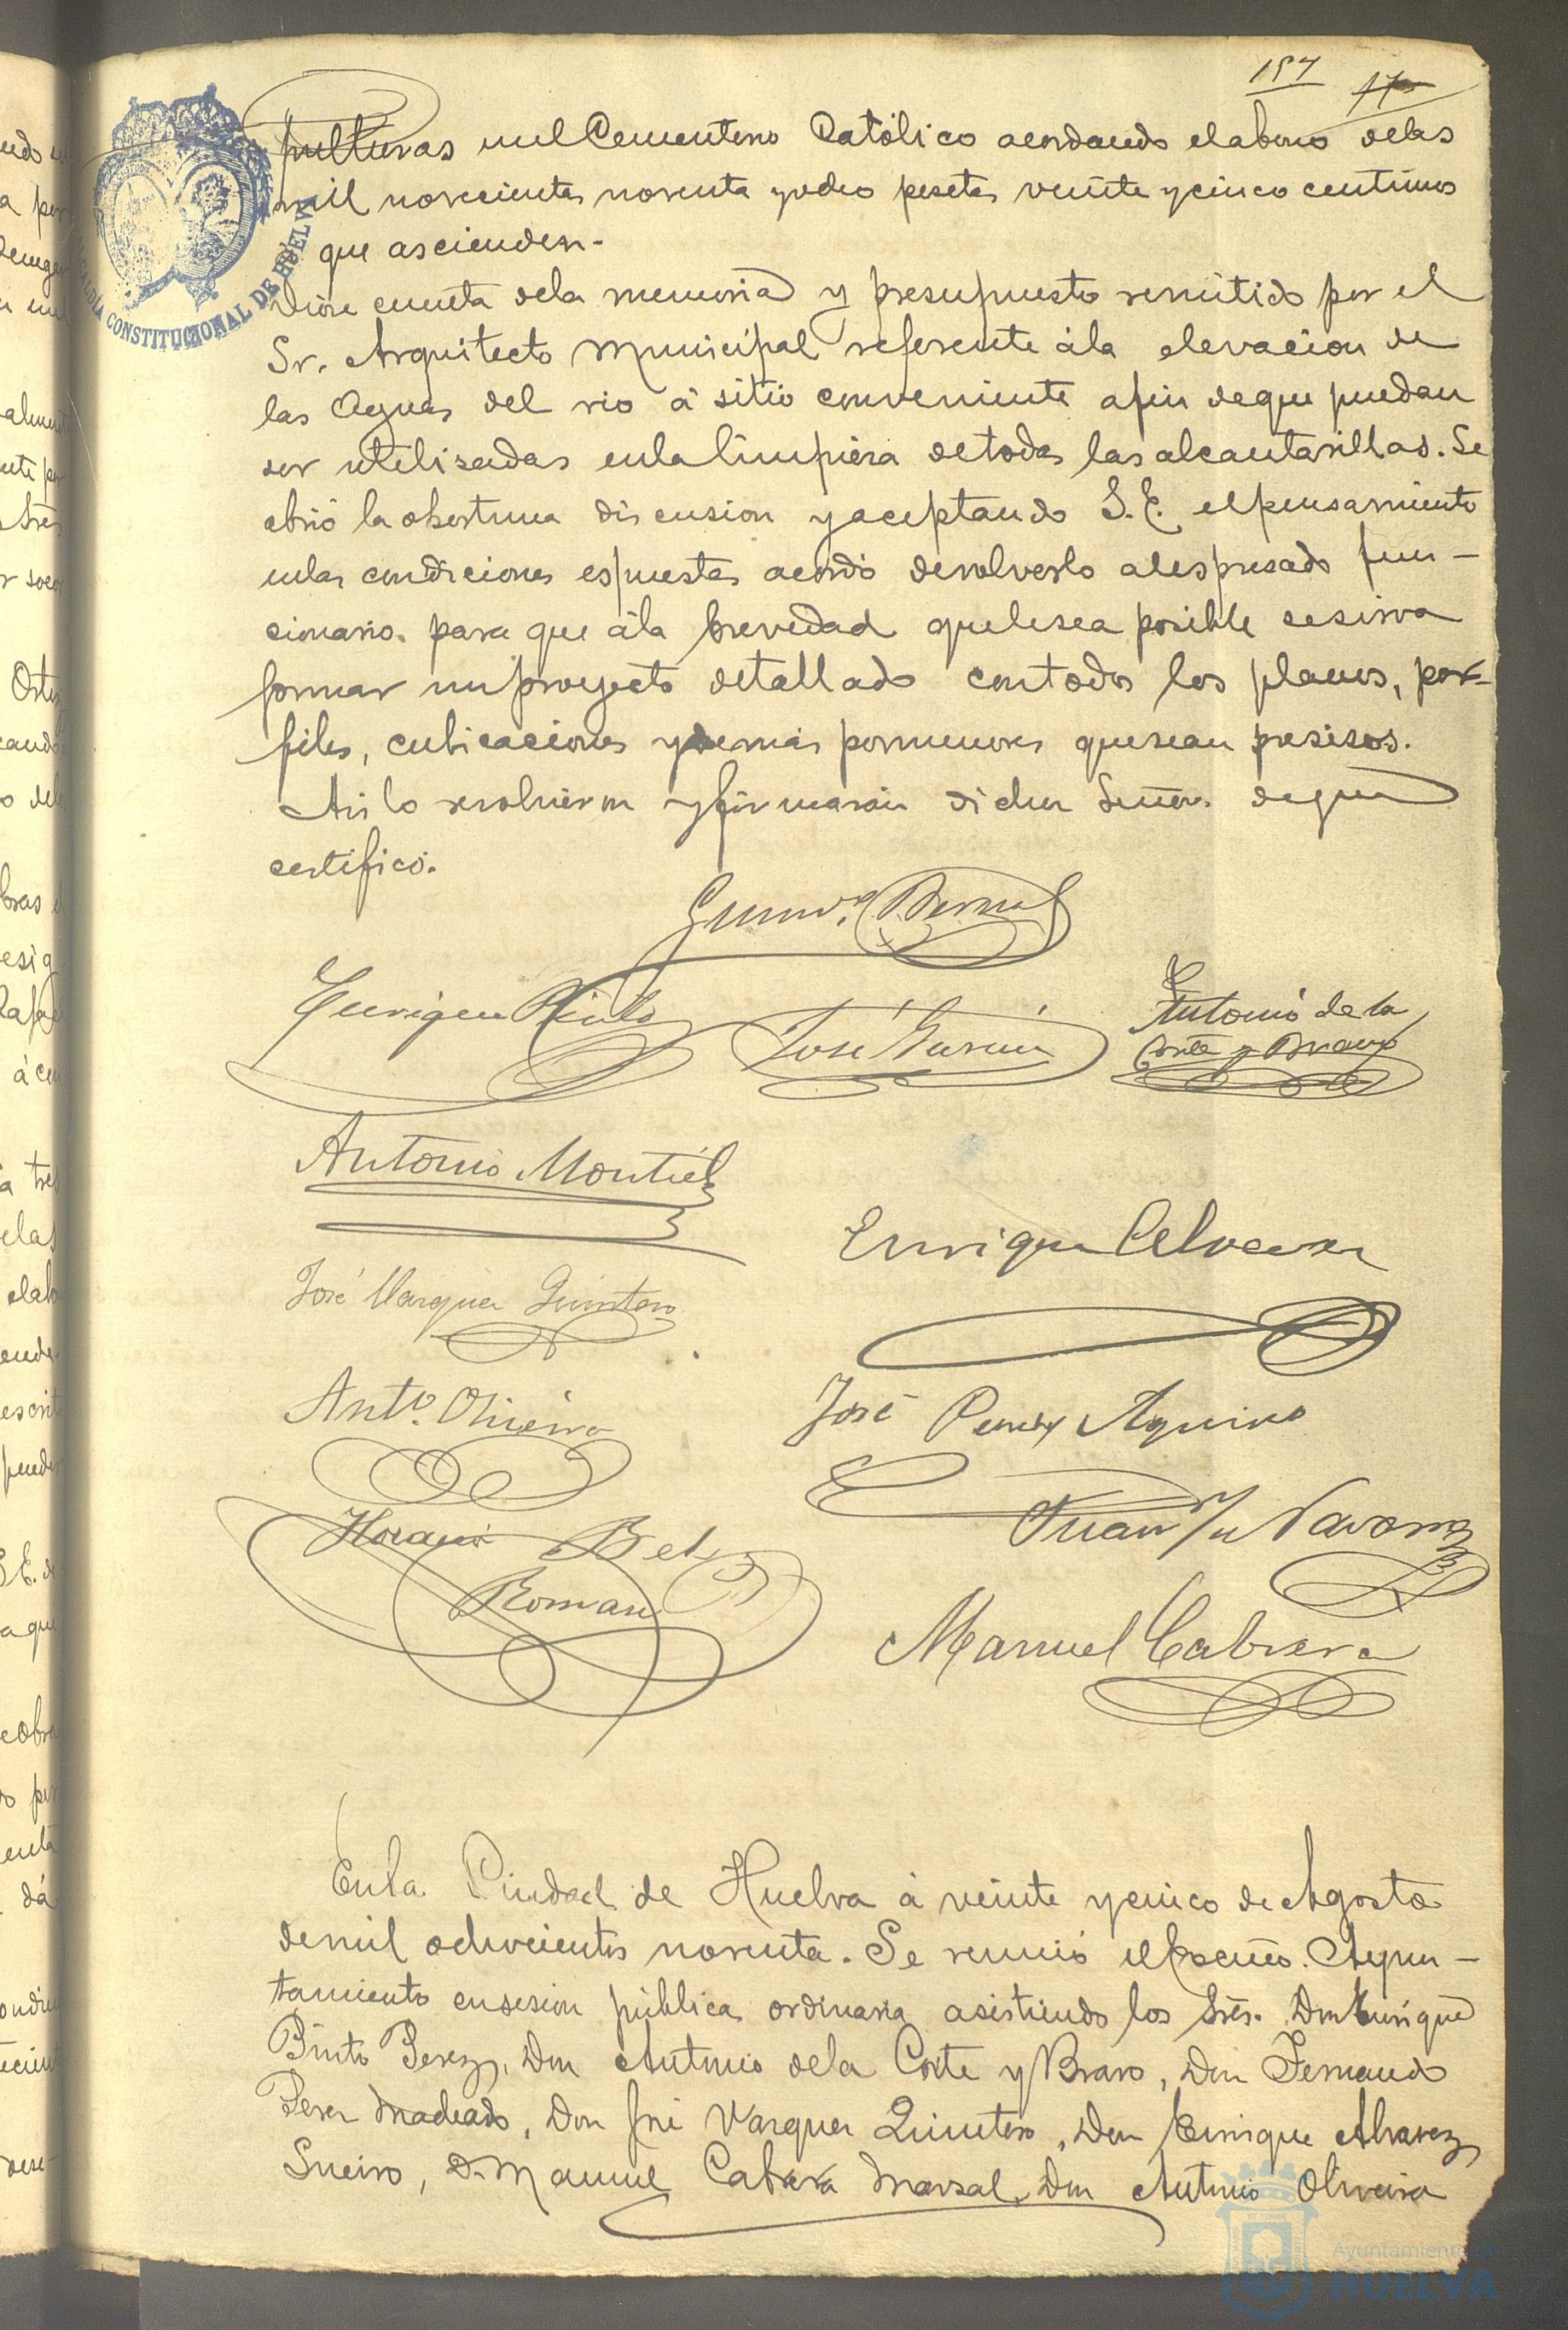 197
pulturas en el Cementerio Católico acordando el abono de las
mil novecientas noventa y dos pesetas veinte y cinco centimos
que ascienden.
Diose cuenta de la memoria y presupuesto remitido por el
Sr. Arquitecto Municipal referente á la elevacion de
las Aguas del rio á sitio conveniente a fin de que puedan
ser utilisadas en la limpieza de todas las alcantarillas. Se
abrió la oportuna discusion y aceptando S.E. el pensamiento
en las condiciones espuestas acordó devolverlo al espresado fun-
cionario para que á la brevedad que le sea posible se sirva
formar un proyecto detallado con todos los planos, per-
files, cubicaciones y demás pormenores que sean presisos.
Asi lo resolvieron y firmarán dichos Señores de que
certifico.
Bernal
Enrique Pinto
José García
Antonio de la
Corte y Bravo
Antonio Montiel
Enrique Alvarez
José Vazquez Quintero
Antº. Oliveira
José Perez Aquino
Horacio Bel
Roman
Juan Navarro
Manuel Cabrera
En la Ciudad de Huelva á veinte y cinco de Agosto
de mil ochocientos noventa. Se reunió el Excmo. Ayun-
tamiento en sesion pública ordinaria asistiendo los Sres. Don Enrique
Pinto Perez, Don Antonio de la Corte y Bravo, Don Fernando
Perez Machado, Don José Vazquez Quintero, Don Enrique Alvarez
Sueiro, D. Manuel Cabrera Marsal, Don Antonio Oliveira
ALCALDÍA CONSTITUCIONAL DE HUELVA
Ayuntamiento de
HUELVA